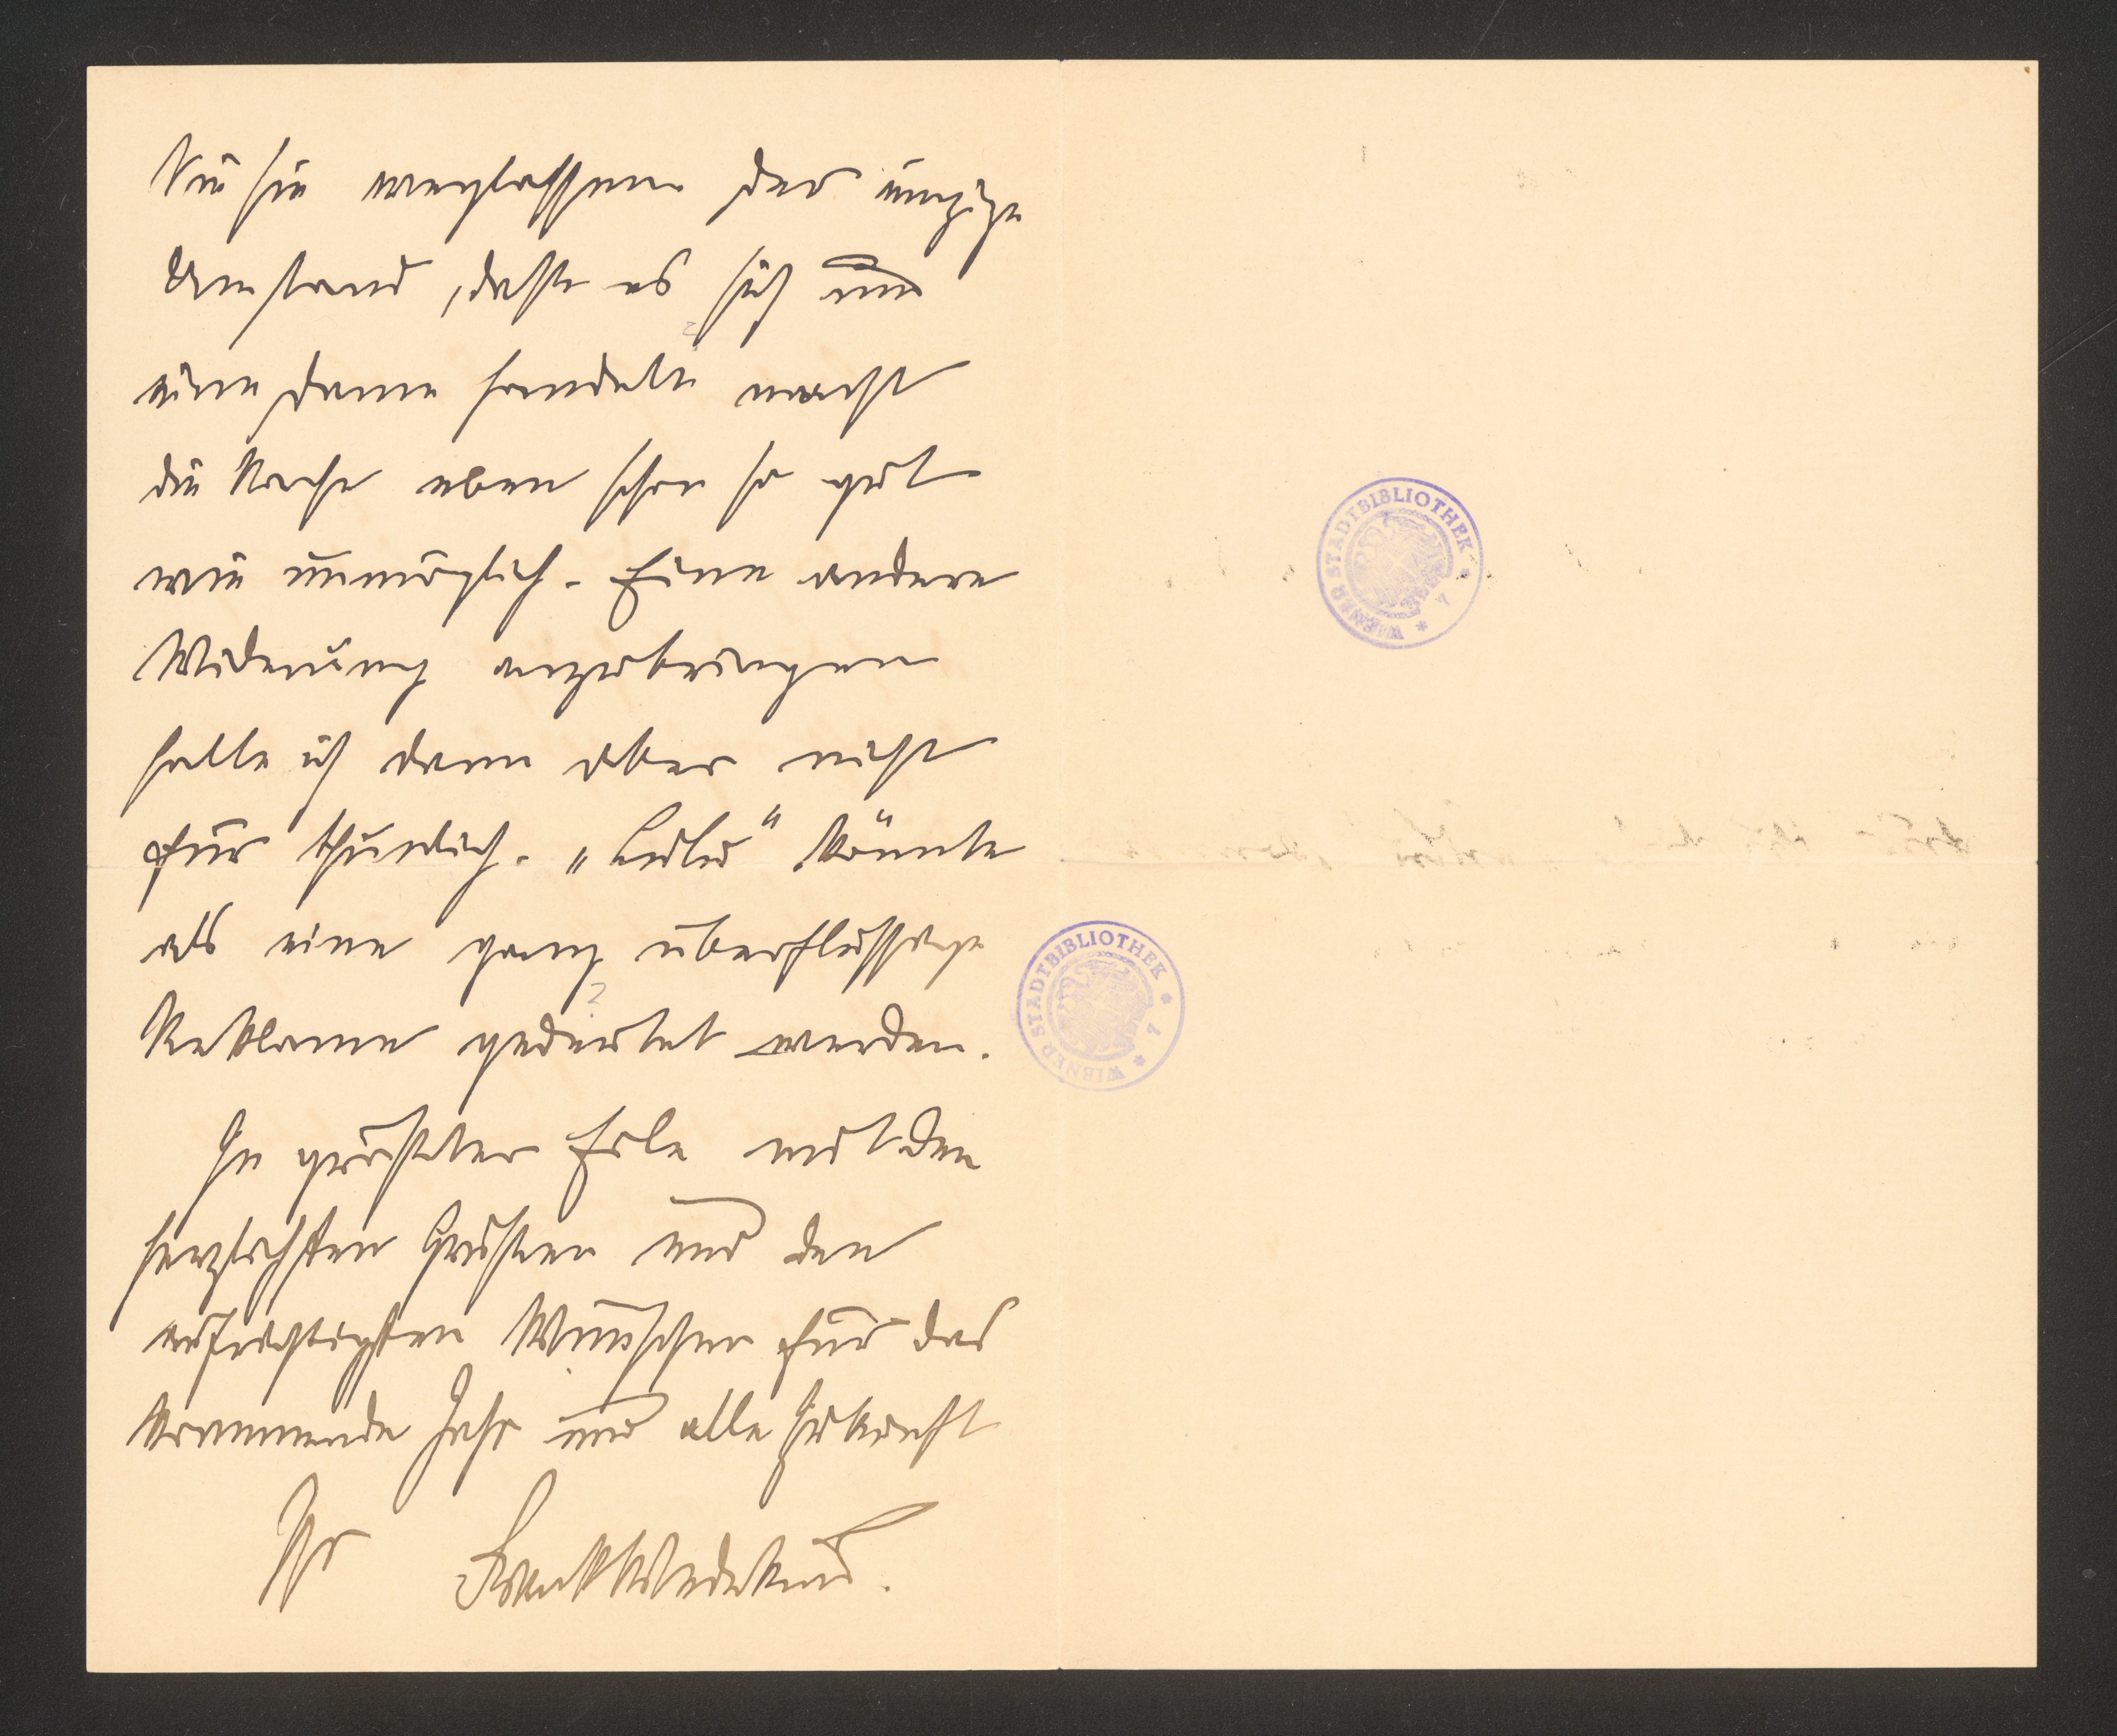 Sie sie weglassen der einzige
Umstand, dass es sich um
eine Dame handelt macht
die Sache eben schon so gut
wie unmöglich. Eine andere
Widmung anzubringen
halte ich dann aber nicht
für thunlich. „Lulu“ könnte
als eine ganz überflüssige
Reklame gedeutet werden.
In größter Eile mit den
herzlichsten Grüßen und den
aufrichtigsten Wünschen für das
kommende Jahr und alle Zukunft
Ihr Frank Wedekind.
WIENER STADTBIBLIOTHEK * 7 *
WIENER STADTBIBLIOTHEK * 7 *